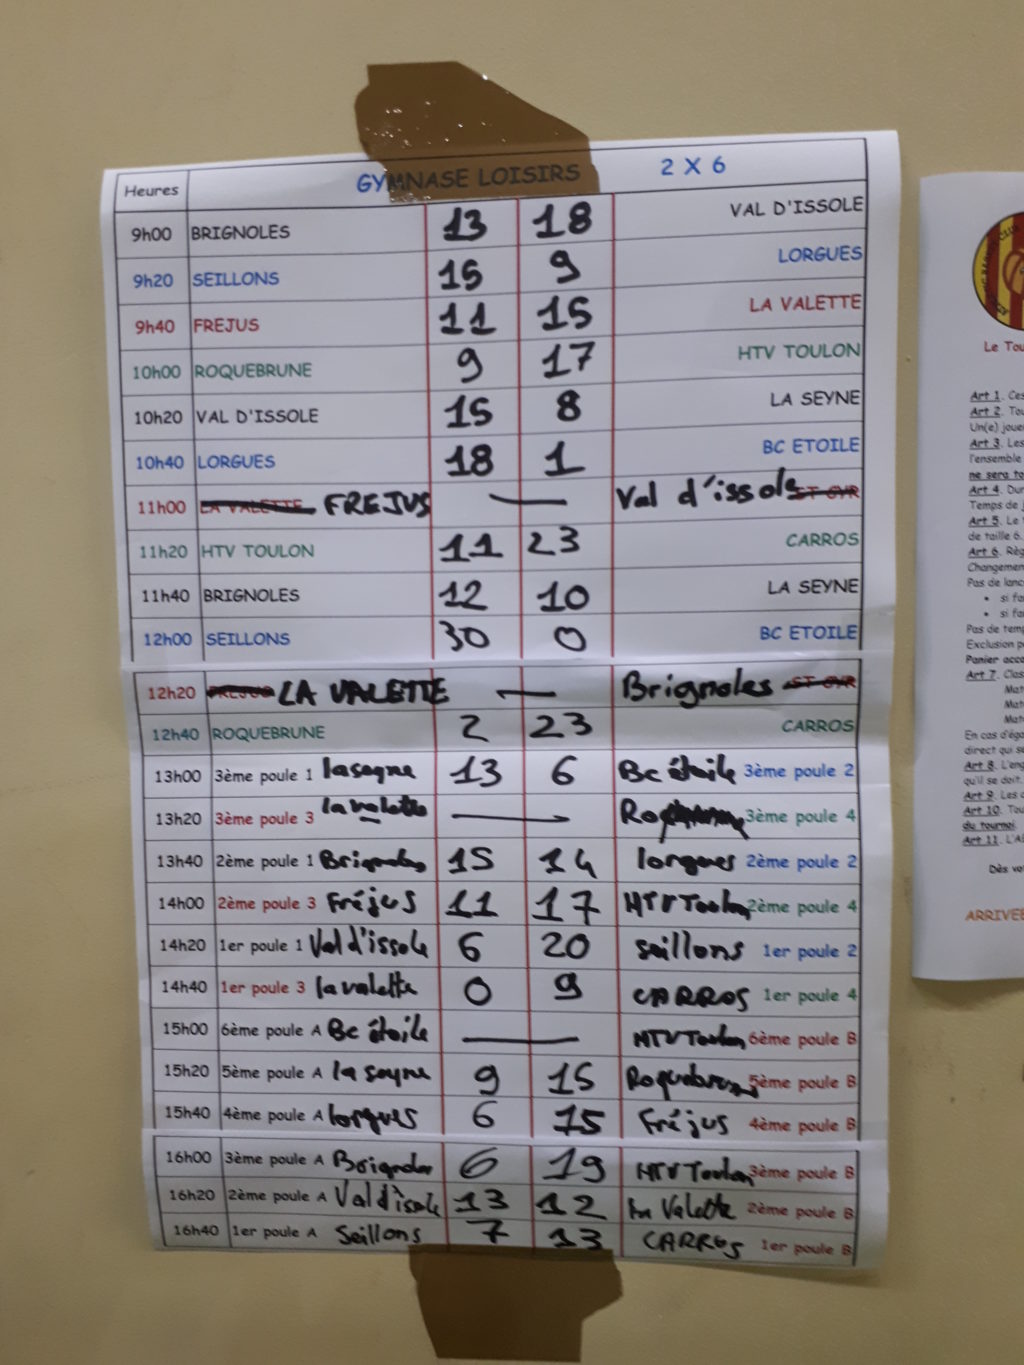 Heures GYMNASE LOISIRS 2 X 6
9h00 BRIGNOLES 13 18 VAL D'ISSOLE
9h20 SEILLONS 15 9 LORGUES
9h40 FREJUS 11 15 LA VALETTE
10h00 ROQUEBRUNE 9 17 HTV TOULON
10h20 VAL D'ISSOLE 15 8 LA SEYNE
10h40 LORGUES 18 1 BC ETOILE
11h00 LA VALETTE FREJUS — Val d'issole ST CYR
11h20 HTV TOULON 11 23 CARROS
11h40 BRIGNOLES 12 10 LA SEYNE
12h00 SEILLONS 30 0 BC ETOILE
12h20 FREJUS LA VALETTE — Brignoles ST CYR
12h40 ROQUEBRUNE 2 23 CARROS
13h00 3ème poule 1 la seyne 13 6 Bc étoile 3ème poule 2
13h20 3ème poule 3 la valette — 3ème poule 4
13h40 2ème poule 1 Brignoles 15 14 lorgues 2ème poule 2
14h00 2ème poule 3 Fréjus 11 17 HTV Toulon 2ème poule 4
14h20 1er poule 1 Val d'issole 6 20 seillons 1er poule 2
14h40 1er poule 3 la valette 0 9 CARROS 1er poule 4
15h00 6ème poule A Bc étoile — HTV Toulon 6ème poule B
15h20 5ème poule A la seyne 9 15 Roquebrune 5ème poule B
15h40 4ème poule A lorgues 6 15 Fréjus 4ème poule B
16h00 3ème poule A Brignoles 6 19 HTV Toulon 3ème poule B
16h20 2ème poule A Val d'issole 13 12 La Valette 2ème poule B
16h40 1er poule A Seillons 7 13 CARROS 1er poule B
Le Tou
Art 1. Ces
Art 2. Tou
Un(e) joue
Art 3. Les
l'ensemble
ne sera to
Art 4. Dur
Temps de j
Art 5. Le
de taille 6.
Art 6. Règ
Changemen
Pas de lanc
• si fa
• si fa
Pas de temp
Exclusion p
Panier acco
Art 7. Clas
Mat
Mat
Mat
En cas d'éga
direct qui se
Art 8. L'eng
qu'il se doit.
Art 9. Les
Art 10. Tou
du tournoi.
Art 11. L'A
Dès vo
ARRIVEE